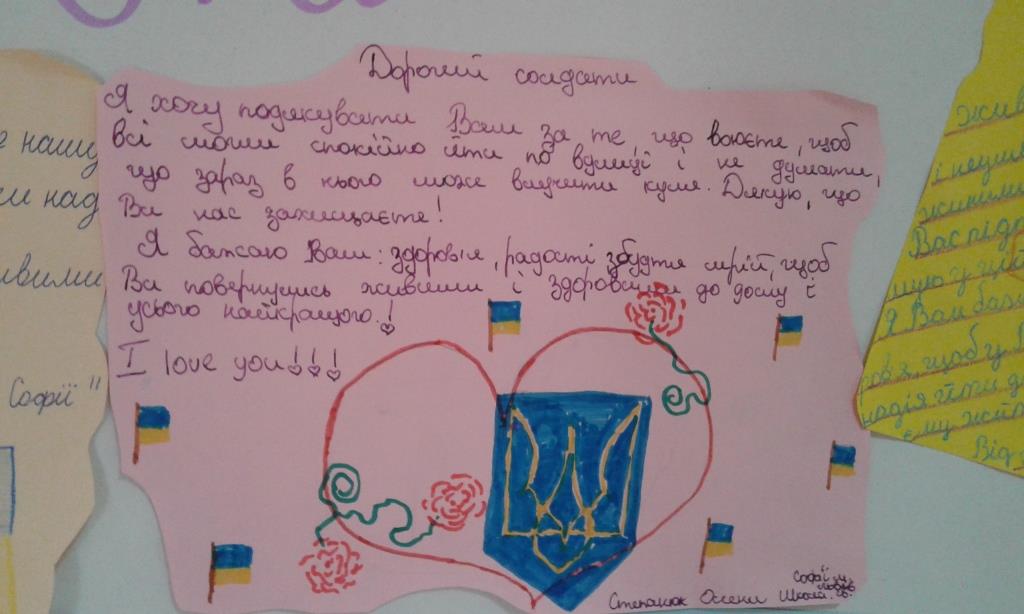 Дорогий солдати
Я хочу подякувати Вам за те, що воюєте, щоб
всі могли спокійно йти по вулиці і не думати,
що зараз в нього може влучити куля. Дякую, що
Ви нас захищаєте!
Я бажаю Вам: здоров'я, радості збуття мрій, щоб
Ви повернулись живими і здоровими до дому і
усього найкращого!
I love you!!!
Степанюк Олени Школа
Софії
е нашу
и над
ивими
Софії"
жив
і неуш
живими
Вас підт
Я Вам бажа
ров'я, щоб у В
надія йти д
єму житт
Від